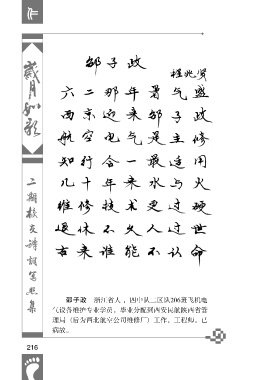 岁月如歌
二期校友诗词笔照集
邹子政
程兆贤
六二那年暑气盛
西京迎来邹子政
航空电气是主修
知行合一最适用
几十年来水与火
维修技术更过硬
退休不久人过世
古来谁能不认命
邹子政 浙江省人，四中队二区队206班飞机电
气设备维护专业学员。毕业分配到西安民航陕西省管
理局（后为西北航空公司维修厂）工作，工程师。已
病故。
216